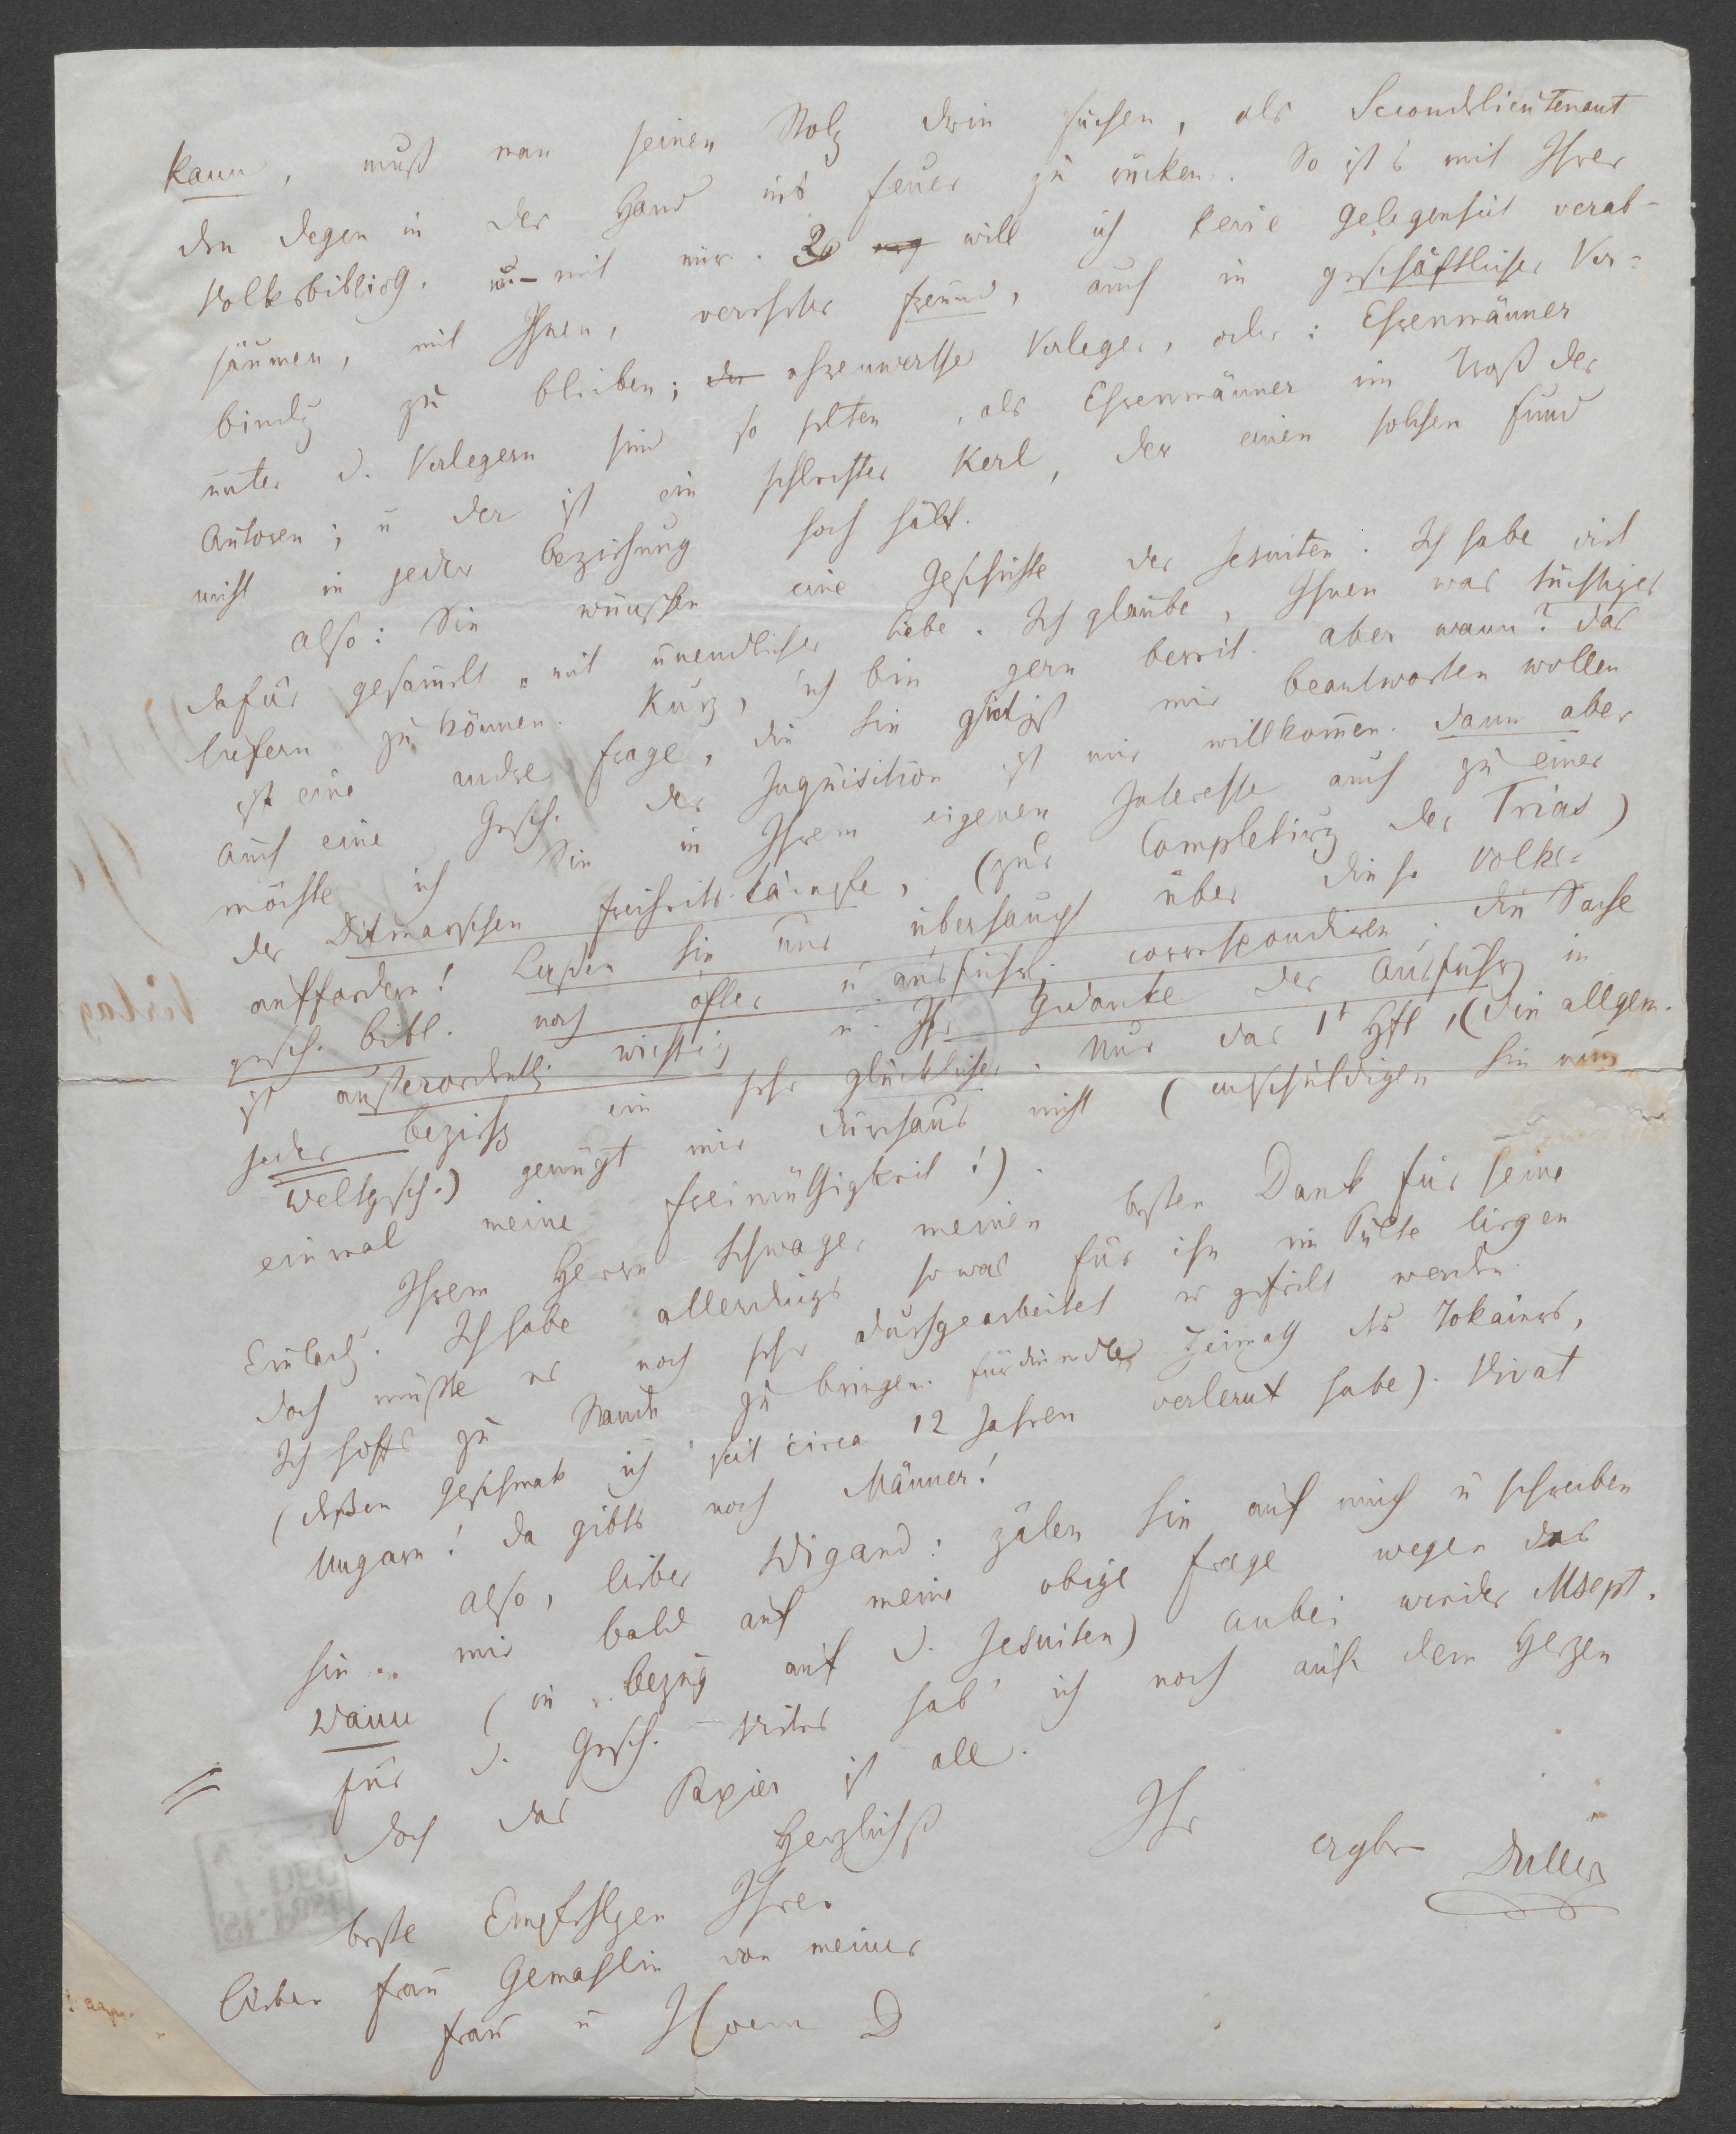 kann, muß man seinen Stolz drin suchen, als Secondelieutenant
den Degen in der Hand ins Feuer zu rücken. So ist's mit Ihrer
Volksbiblioth. u. mit mir. 2) will ich keine Gelegenheit verab-
säumen, mit Ihnen, verehrter Freund, auch in geschäftlicher Ver-
bindg zu bleiben; ehrenwerthe Verleger, oder: Ehrenmänner
unter d. Verlegern sind so selten, als Ehrenmänner im Troß der
Autoren; u der ist ein schlechter Kerl, der einen solchen Fund
nicht in jeder Beziehung hoch hält.
Also: Sie wünschen eine Geschichte der Jesuiten. Ich habe viel
dafür gesammelt, mit unendlicher Liebe. Ich glaube, Ihnen was tüchtiges
liefern zu können. Kurz, ich bin gern bereit. Aber wann? Das
ist eine andre Frage, die Sie gütigst mir beantworten wollen
Auch eine Gesch. der Inquisition ist mir willkommen. Dann aber
möchte ich Sie in Ihrem eigenen Interesse auch zu einer
der Ditmarschen Freiheits-Kämpfe, (zur Completirg der Trias)
auffordern! Laßen Sie uns überhaupt über diese Volks-
gesch. Bibl. noch öfter u ausführl. correspondiren. Die Sache
ist außerordentl. wichtig u. Ihr Gedanke der Ausführg in
jeder Beziehg ein sehr glücklicher. Nur das 1t Hft, (die allgem.
Weltgesch.) genügt mir durchaus nicht (entschuldigen Sie nun
einmal meine Freimüthigkeit!).
Ihrem Herrn Schwager meinen besten Dank für seine
Einladg. Ich habe allerdings so was für ihn im Pulte liegen
doch müßte es noch sehr durchgearbeitet u gefeilt werden.
Ich hoffs zu Stande zu bringen. für die edle Heimath des Tokaiers,
(deßen Geschmak ich seit circa 12 Jahren verlernt habe). Vivat
Ungarn! Da gibts noch Männer!
Also, lieber Wigand: zälen Sie auf mich u schreiben
Sie mir bald auf meine obige Frage wegen des
Wann (in Bezug auf d. Jesuiten) anbei wieder Mscpt.
für d. Gesch. – Vieles hab' ich noch auf dem Herzen
doch das Papier ist all.
Herzlichst
Ihr ergbr Duller
beste Empfehlgen Ihrer
lieben Frau Gemahlin von meiner
Frau u Ihrem D